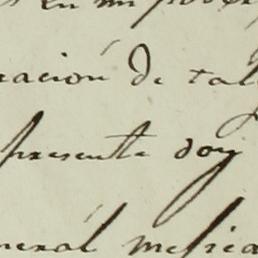 en mi poder
ración de tal
presente doy
neral mexica